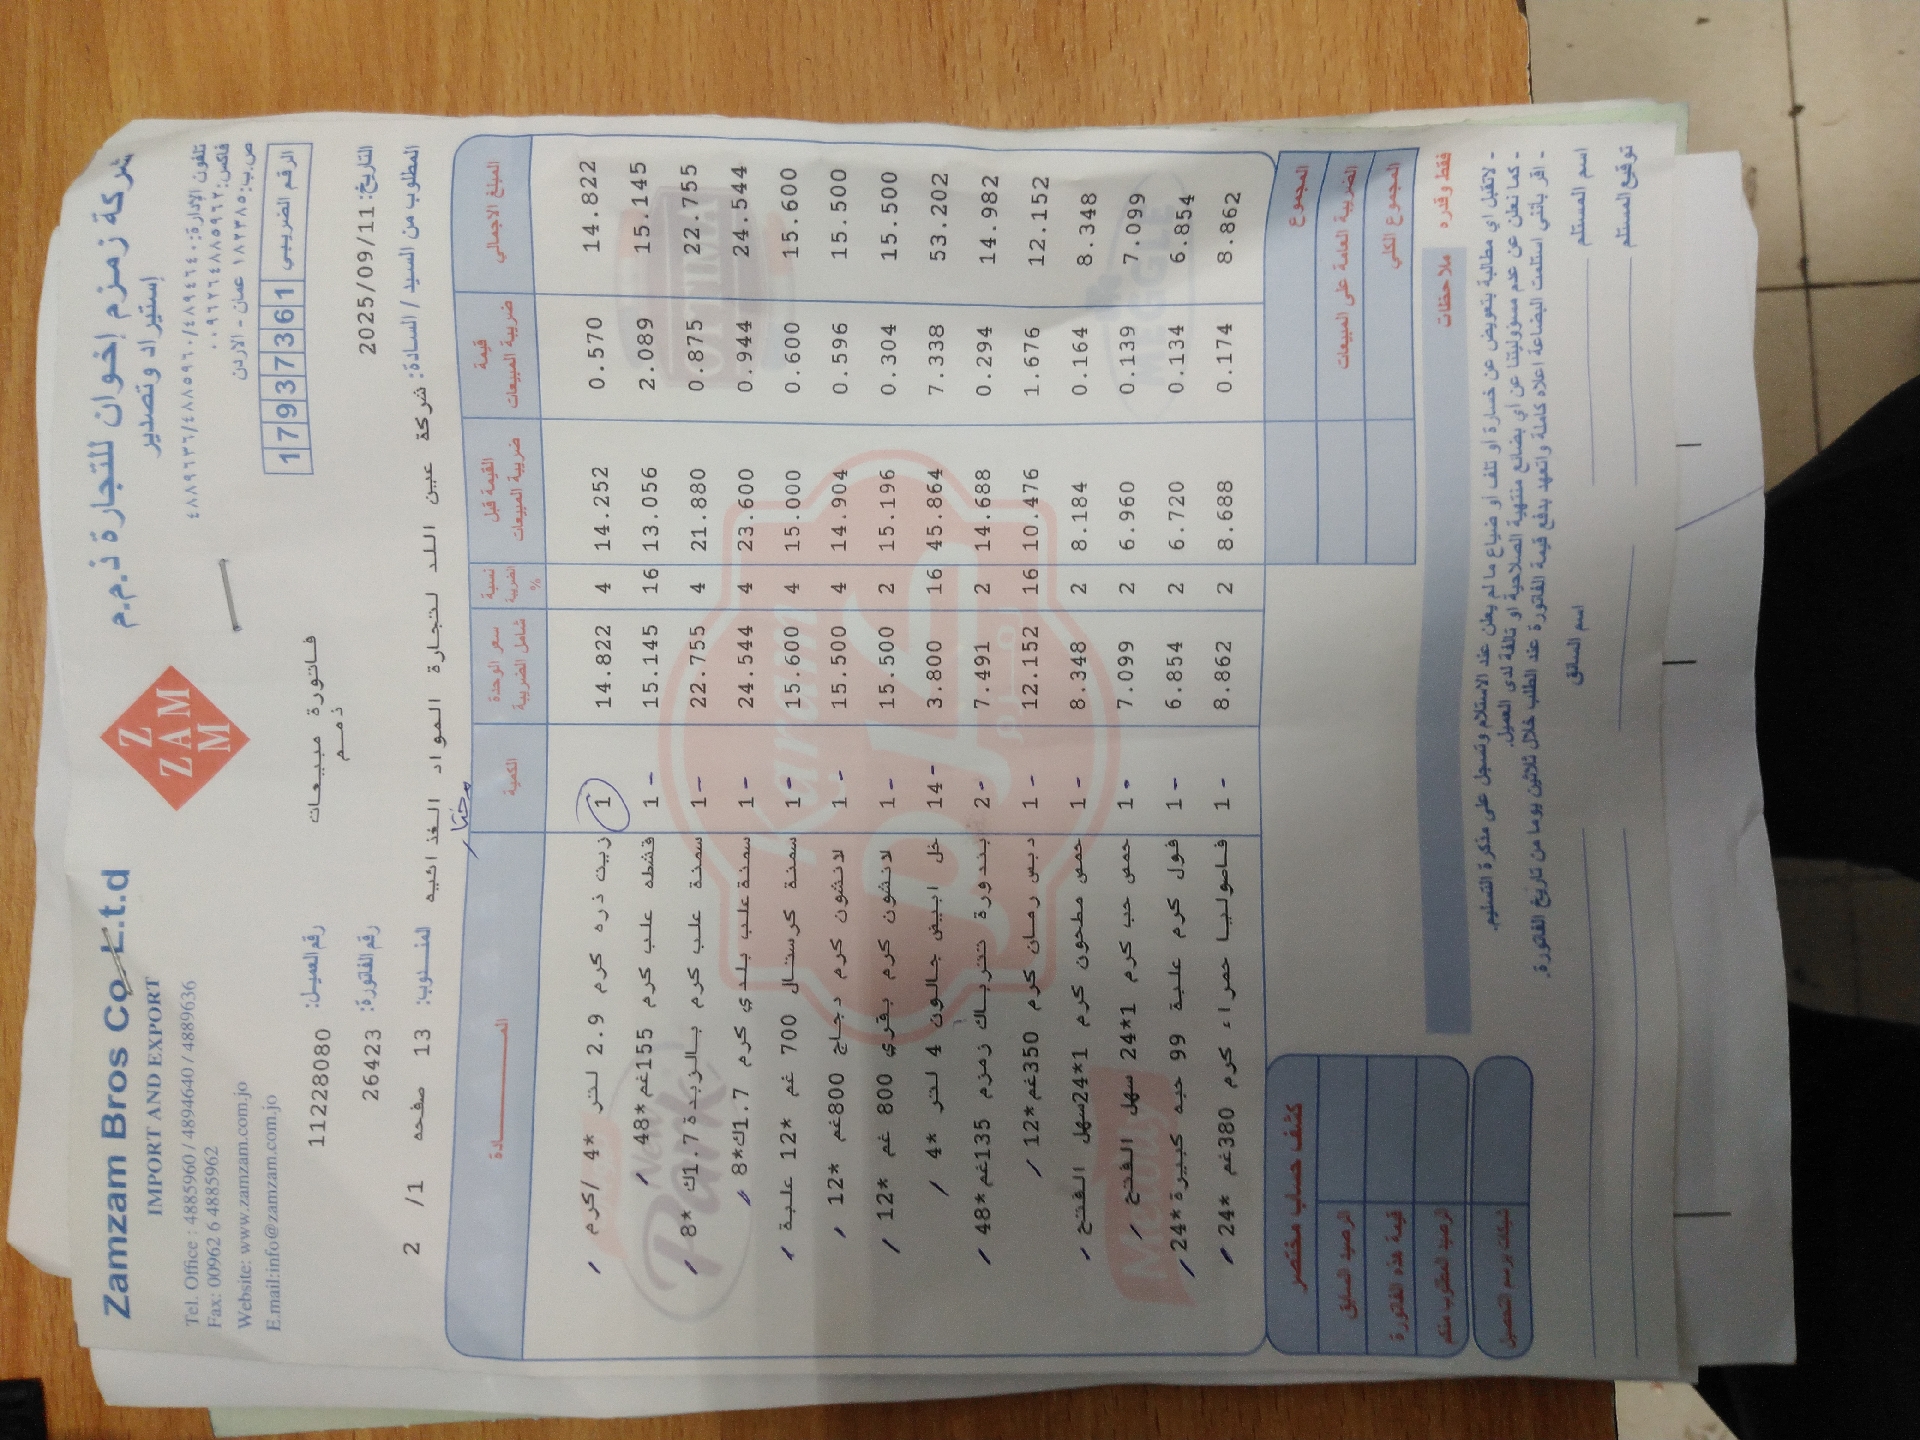 Zamzam Bros Co L.t.d
IMPORT AND EXPORT
Tel. Office : 4885960 / 4894640 / 4889636
Fax: 00962 6 4885962
Website: www.zamzam.com.jo
E.mail:info@zamzam.com.jo
Z
ZAM
M
شركة زمزم إخوان للتجارة ذ.م.م
إستيراد وتصدير
تلفون الإدارة: ٤٨٨٩٦٣٦/٤٨٨٥٩٦٠/٤٨٩٤٦٤٠
فاكس: ٠٠٩٦٢٦٤٨٨٥٩٦٢
ص.ب: ١٨٢٣٨٥ عمان - الاردن
الرقم الضريبي 17937361
فاتورة مبيعات
ذمم
رقم العميل: 11228080
رقم الفاتورة: 26423
التاريخ: 2025/09/11
المطلوب من السيد / السادة: شركة عين اللد لتجارة المواد الغذائيه
المندوب: 13 صفحه 1/ 2
المادة الكمية سعر الوحدة شامل الضريبة نسبة الضريبة % القيمة قبل ضريبة المبيعات قيمة ضريبة المبيعات المبلغ الاجمالي
زيت ذره كرم 2.9 لتر *4 /كرم 1 14.822 4 14.252 0.570 14.822
قشطه علب كرم 155غم*48 1 15.145 16 13.056 2.089 15.145
سمنة علب كرم بالزبدة 1.7ك*8 1 22.755 4 21.880 0.875 22.755
سمنة علب بلدي كرم 1.7ك*8 1 24.544 4 23.600 0.944 24.544
سمنة كرستال 700 غم *12 علبة 1 15.600 4 15.000 0.600 15.600
لانشون كرم دجاج 800غم *12 1 15.500 4 14.904 0.596 15.500
لانشون كرم بقري 800 غم *12 1 15.500 2 15.196 0.304 15.500
خل ابيض جالون 4 لتر *4 14 3.800 16 45.864 7.338 53.202
بندورة تتراباك زمزم 135غم*48 2 7.491 2 14.688 0.294 14.982
دبس رمان كرم 350غم*12 1 12.152 16 10.476 1.676 12.152
حمص مطحون كرم 1*24سهل الفتح 1 8.348 2 8.184 0.164 8.348
حمص حب كرم 1*24 سهل الفتح 1 7.099 2 6.960 0.139 7.099
فول كرم علبة 99 حبه كبيرة*24 1 6.854 2 6.720 0.134 6.854
فاصوليا حمراء كرم 380غم *24 1 8.862 2 8.688 0.174 8.862
المجموع
الضريبة العامة على المبيعات
المجموع الكلي
كشف حساب مختصر
الرصيد السابق
قيمة هذه الفاتورة
الرصيد المطلوب منكم
شيكات برسم التحصيل
فقط وقدره
ملاحظات
- لاتقبل اي مطالبة بتعويض عن خسارة او تلف او ضياع ما لم يعلن عند الاستلام وتسجل على مذكرة التسليم.
- كما نعلن عن عدم مسؤوليتنا عن أي بضائع منتهية الصلاحية أو تالفة لدى العميل.
- اقر بأنني استلمت البضاعة اعلاه كاملة واتعهد بدفع قيمة الفاتورة عند الطلب خلال ثلاثين يوما من تاريخ الفاتورة.
اسم المستلم
اسم السائق
توقيع المستلم